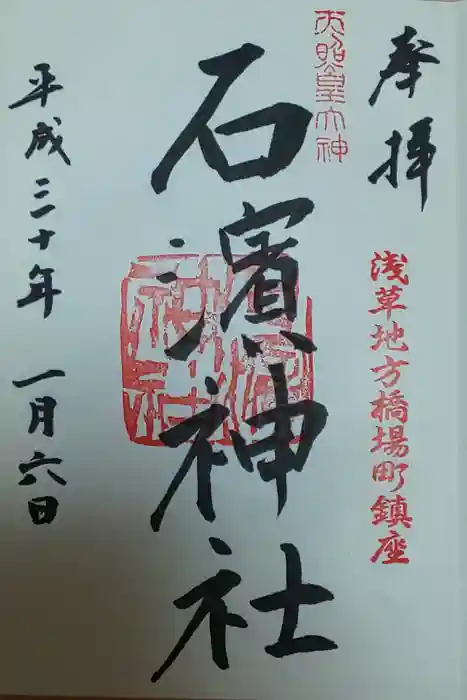 奉拝
浅草地方橋場町鎮座
天照皇大神
石濱神社
平成三十年 一月六日